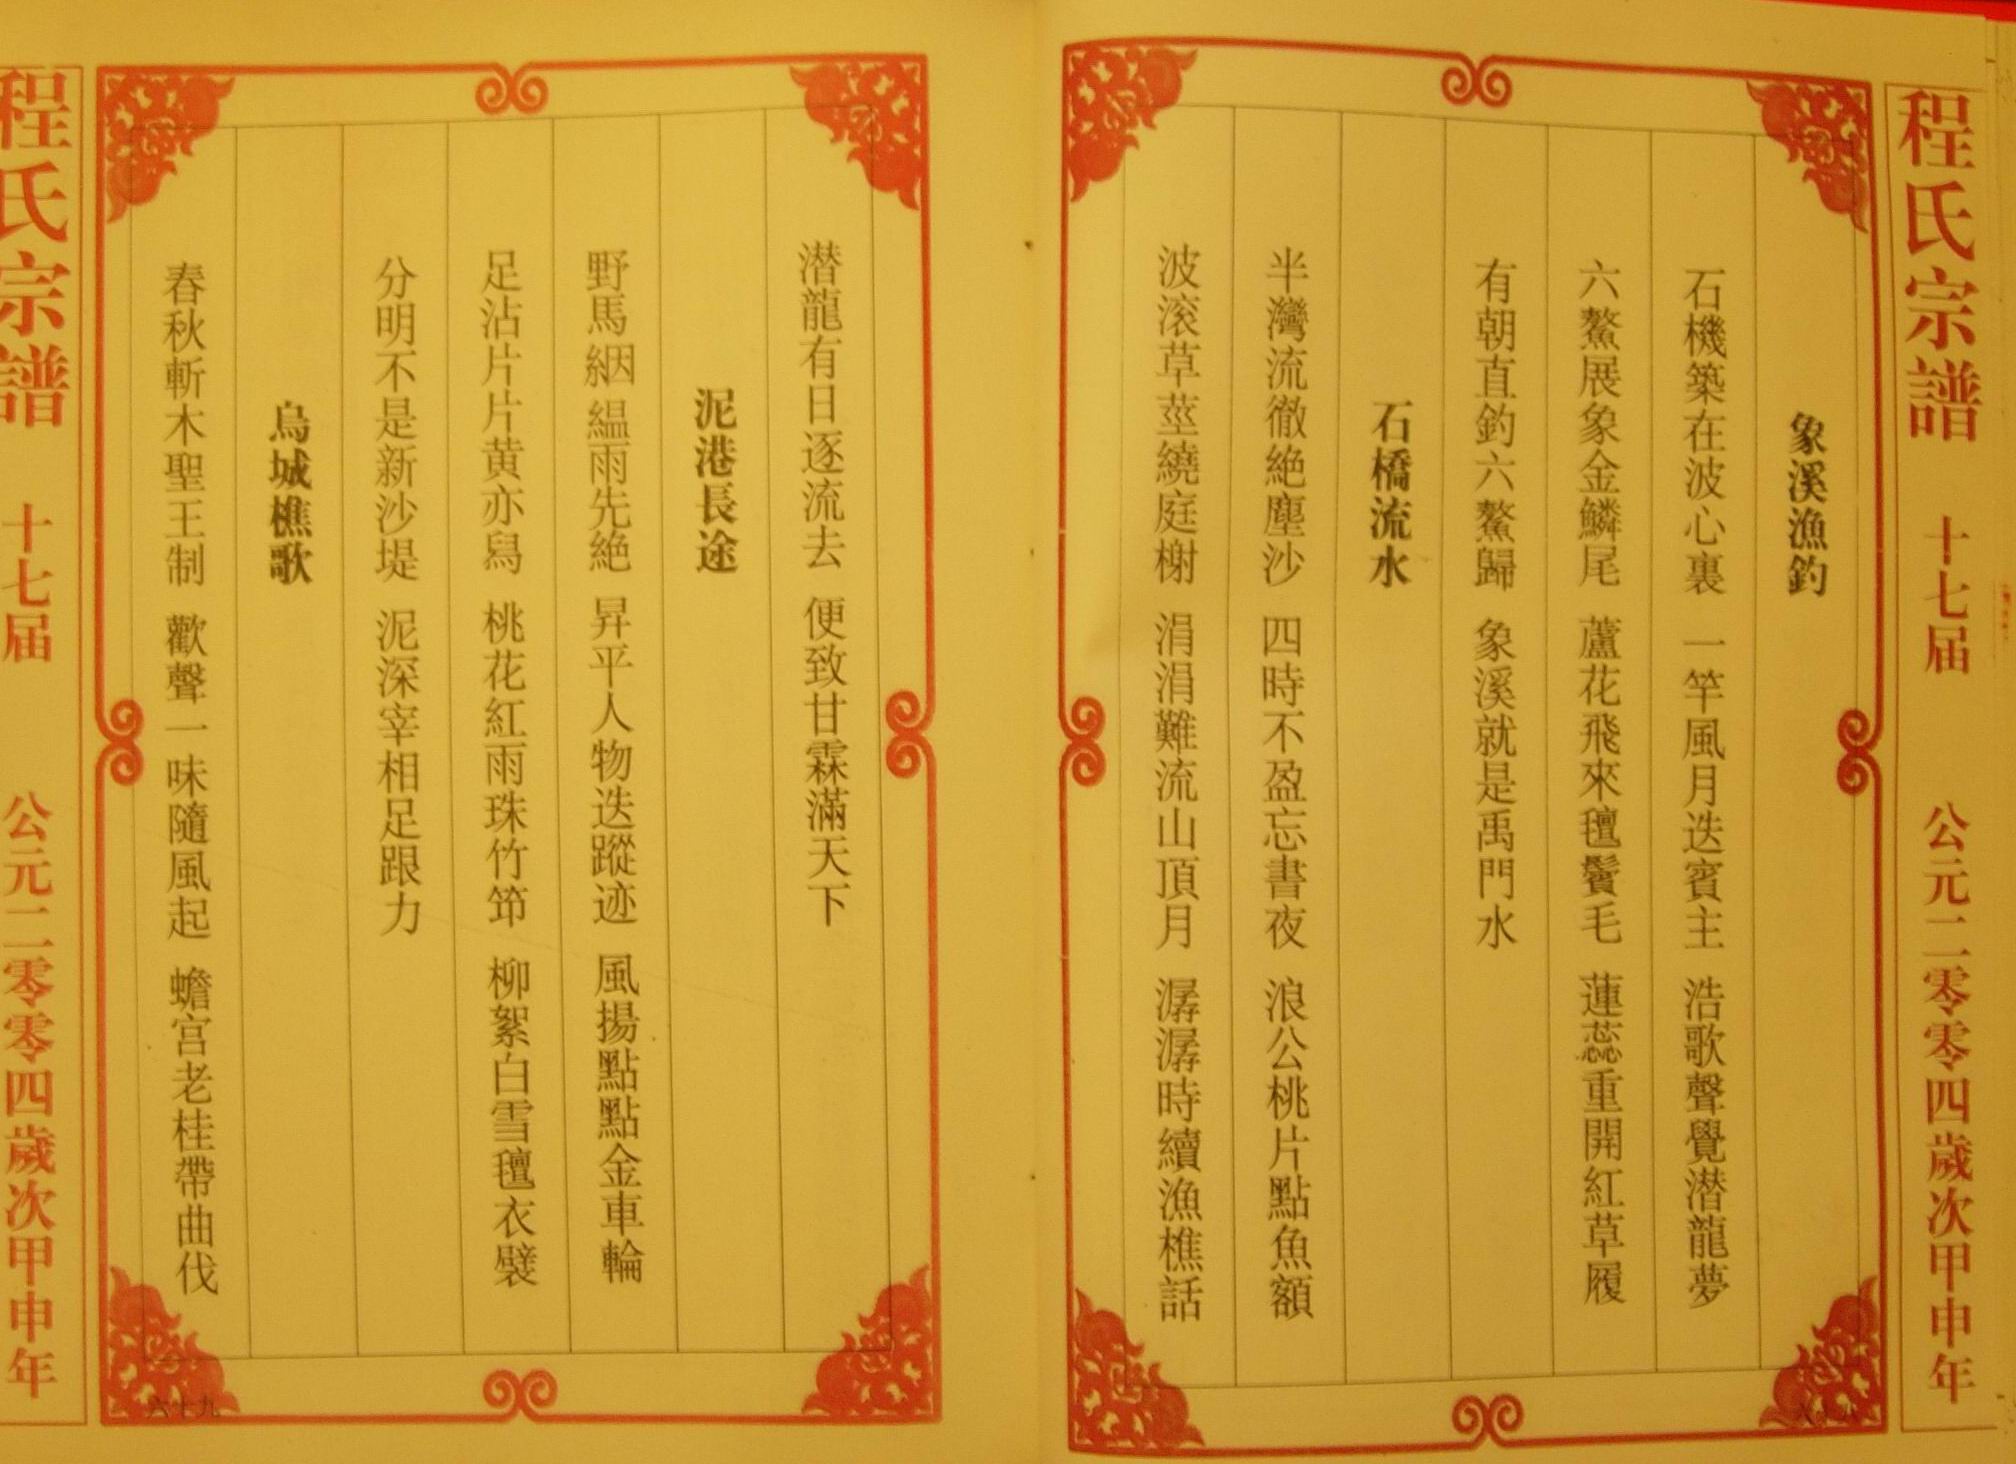 程氏宗譜 十七届 公元二零零四歲次甲申年
象溪漁釣
石機築在波心裏 一竿風月迭賓主 浩歌聲覺潜龍夢
六鰲展象金鱗尾 蘆花飛來氊鬢毛 蓮蕊重開紅草履
有朝直釣六鰲歸 象溪就是禹門水
石橋流水
半灣流徹絶塵沙 四時不盈忘書夜 浪公桃片點魚額
波滚草莖繞庭榭 涓涓難流山頂月 潺潺時續漁樵話
潜龍有日逐流去 便致甘霖滿天下
泥港長途
野馬絪緼雨先絶 昇平人物迭蹤迹 風揚點點金車輪
足沾片片黄亦舄 桃花紅雨珠竹笻 柳絮白雪氊衣襞
分明不是新沙堤 泥深宰相足跟力
烏城樵歌
春秋斬木聖王制 歡聲一味隨風起 蟾宫老桂帶曲伐
六十九
程氏宗譜 十七届 公元二零零四歲次甲申年